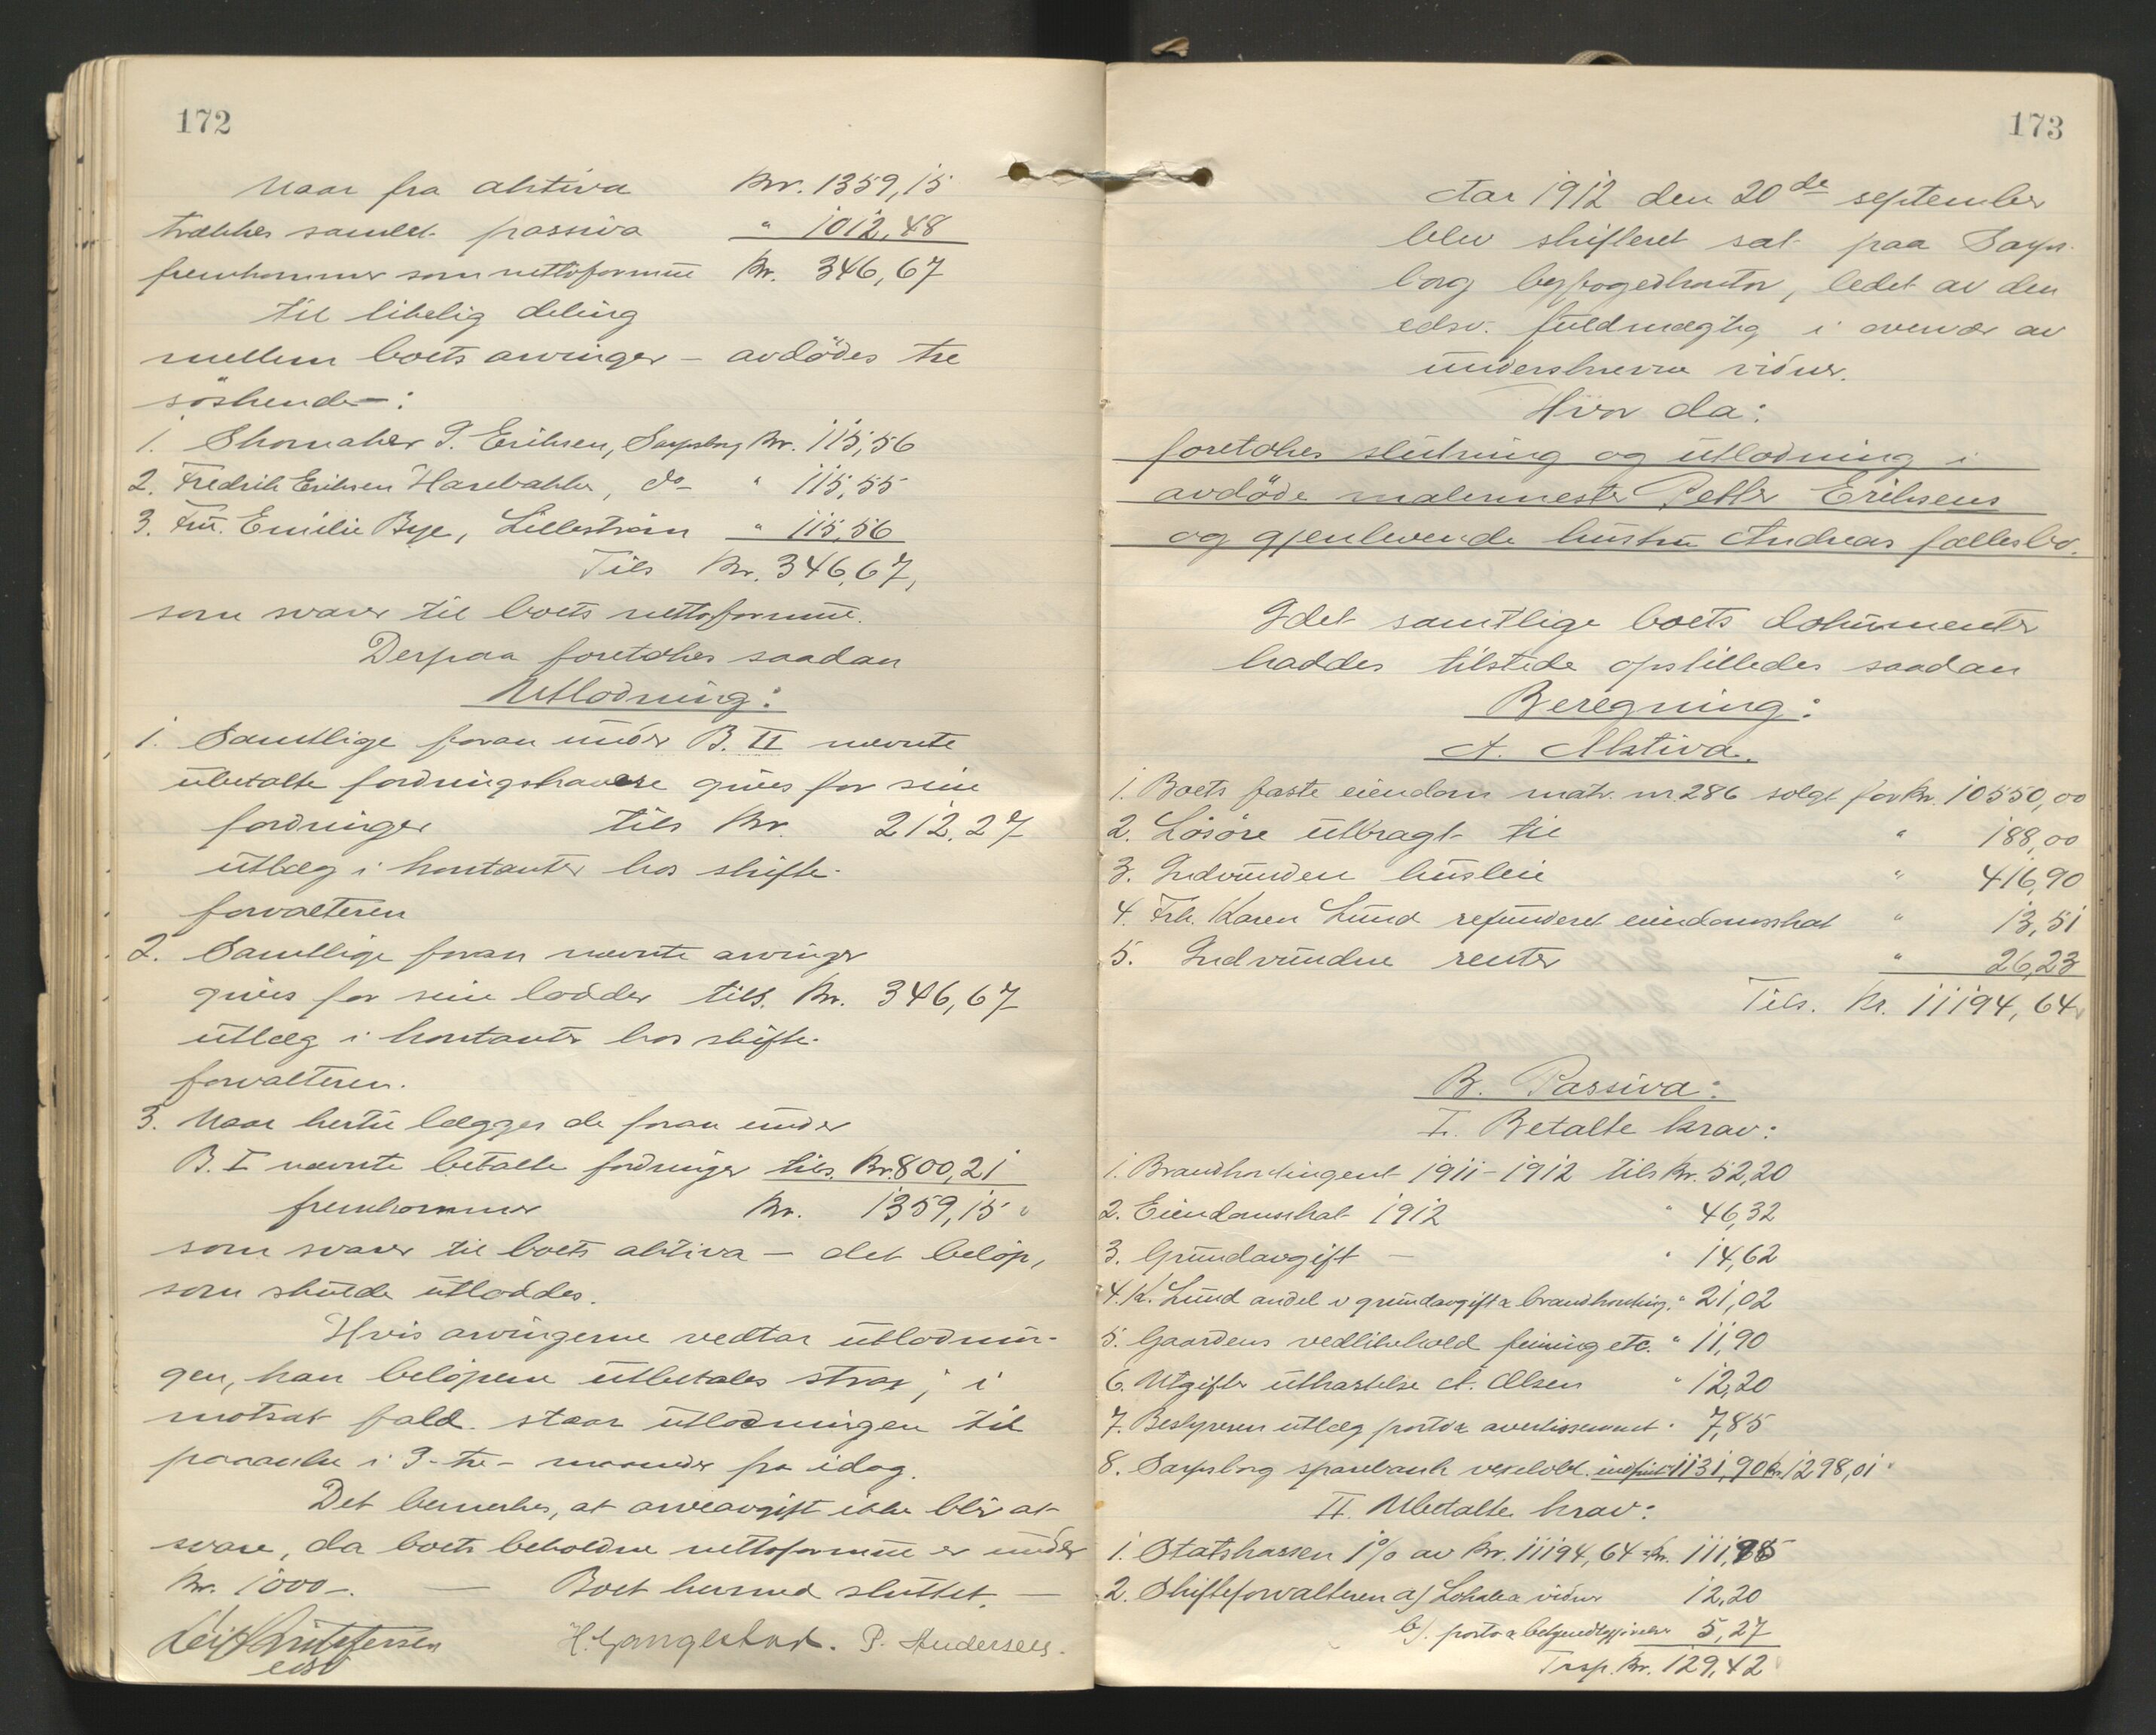 172
Naar fra aktiva Kr. 1359,15
trækkes samlet passiva " 1012,48
fremkommer som nettoformue Kr. 346,67
til likelig deling
mellem boets arvinger – avdødes tre
søskende –:
1. Skomaker P. Eriksen, Sarpsborg Kr. 115,56
2. Fredrik Eriksen Harebakke, do " 115,55
3. Fru Emilie Bye, Lillestrøm " 115,56
Tils Kr. 346,67,
som svarer til boets nettoformue.
Derpaa foretokes saadan
Utlodning:
1. Samtlige foran under B. II nævnte
ubetalte fordringshavere gives for sine
fordringer tils Kr. 212,27
utlæg i kontanter hos skifte-
forvalteren
2. Samtlige foran nævnte arvinger
gives for sine lodder tils. Kr. 346,67
utlæg i kontanter hos skifte-
forvalteren.
3. Naar hertil lægges de foran under
B. I nævnte betalte fordringer tils. Kr. 800,21
fremkommer Kr. 1359,15
som svarer til boets aktiva – det beløp,
som skulde utloddes.
Hvis arvingerne vedtar utlodnin-
gen, kan beløpene utbetales strax; i
motsat fald staar utlodningen til
paaanke i 3 – tre – maaneder fra idag.
Det bemerkes, at arveavgift ikke blir at
svare, da boets beholdne nettoformue er under
Kr. 1000 –. — Boet hermed sluttet. —
edsv H. Gangestad. P. Andersen.
173
Aar 1912 den 20de september
blev skifteret sat paa Sarps-
borg byfogedkontor, ledet av den
edsv. fuldmægtig i overvær av
underskrevne vidner.
Hvor da:
foretokes slutning og utlodning i
avdøde malermester Petter Eriksens
og gjenlevende hustru Andreas fællesbo.
Idet samtlige boets dokumenter
haddes tilstede opstilledes saadan
Beregning:
A. Aktiva.
1. Boets faste eiendom matr. nr. 286 solgt for Kr. 10550,00
2. Løsøre utbragt til " 188,00
3. Indvunden husleie " 416,90
4. Frk. Karen Lund refunderet eiendomsskat " 13,51
5. Indvundne renter " 26,23
Tils. Kr. 11194,64
B. Passiva:
I. Betalte krav:
1. Brandkontingent 1911–1912 tils Kr. 52,20
2. Eiendomsskat 1912 " 46,32
3. Grundavgift — " 14,62
4. K. Lund andel v grundavgift & brandkonting. " 21,02
5. Gaardens vedlikehold feining etc. " 11,90
6. Utgifter utkastelse A. Olsen " 12,20
7. Bestyreren utlæg porto & avertissement " 7,85
8. Sarpsborg sparebank vekselobl. indfriet " 1131,90 Kr. 1298,01
II. Ubetalte krav:
1. Statskassen 1% av Kr. 11194,64 = Kr. 111,95
2. Skifteforvalteren a) Lokale & vidner 12,20
b). porto & bekjendtgjørelser 5,27
Trsp. Kr. 129,42